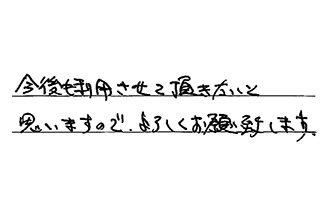 今後も利用させて頂きたいと
思いますので、よろしくお願い致します。